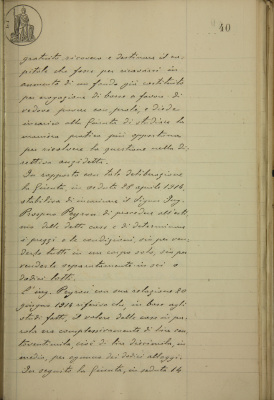 40
gratuito ricovero e destinare il ca-
pitale che fosse per ricavarsi in
aumento di un fondo già costituito
per erogazioni di borse a favore di
vedove povere con prole, e diede
incarico alla Giunta di studiare la
maniera pratica più opportuna
per risolvere la questione nella di-
rettiva anzidetta.
In rapporto con tale deliberazione
la Giunta, in seduta 28 aprile 1914,
stabiliva di incaricare il signor Ing.
Prospero Peyron di procedere all'esti-
mo delle dette case e di determinare
i prezzi e le condizioni, sia per ven-
derle tutte in un corpo solo, sia per
venderle separatamente in sei o
dodici lotti.
L'ing. Peyron con sua relazione 20
giugno 1914 riferiva che, in base agli
studi fatti, il valore delle case in pa-
rola era complessivamente di lire cen-
toventimila, ossia di lire diecimila, in
media, per ognuno dei dodici alloggi.
In seguito la Giunta, in seduta 14